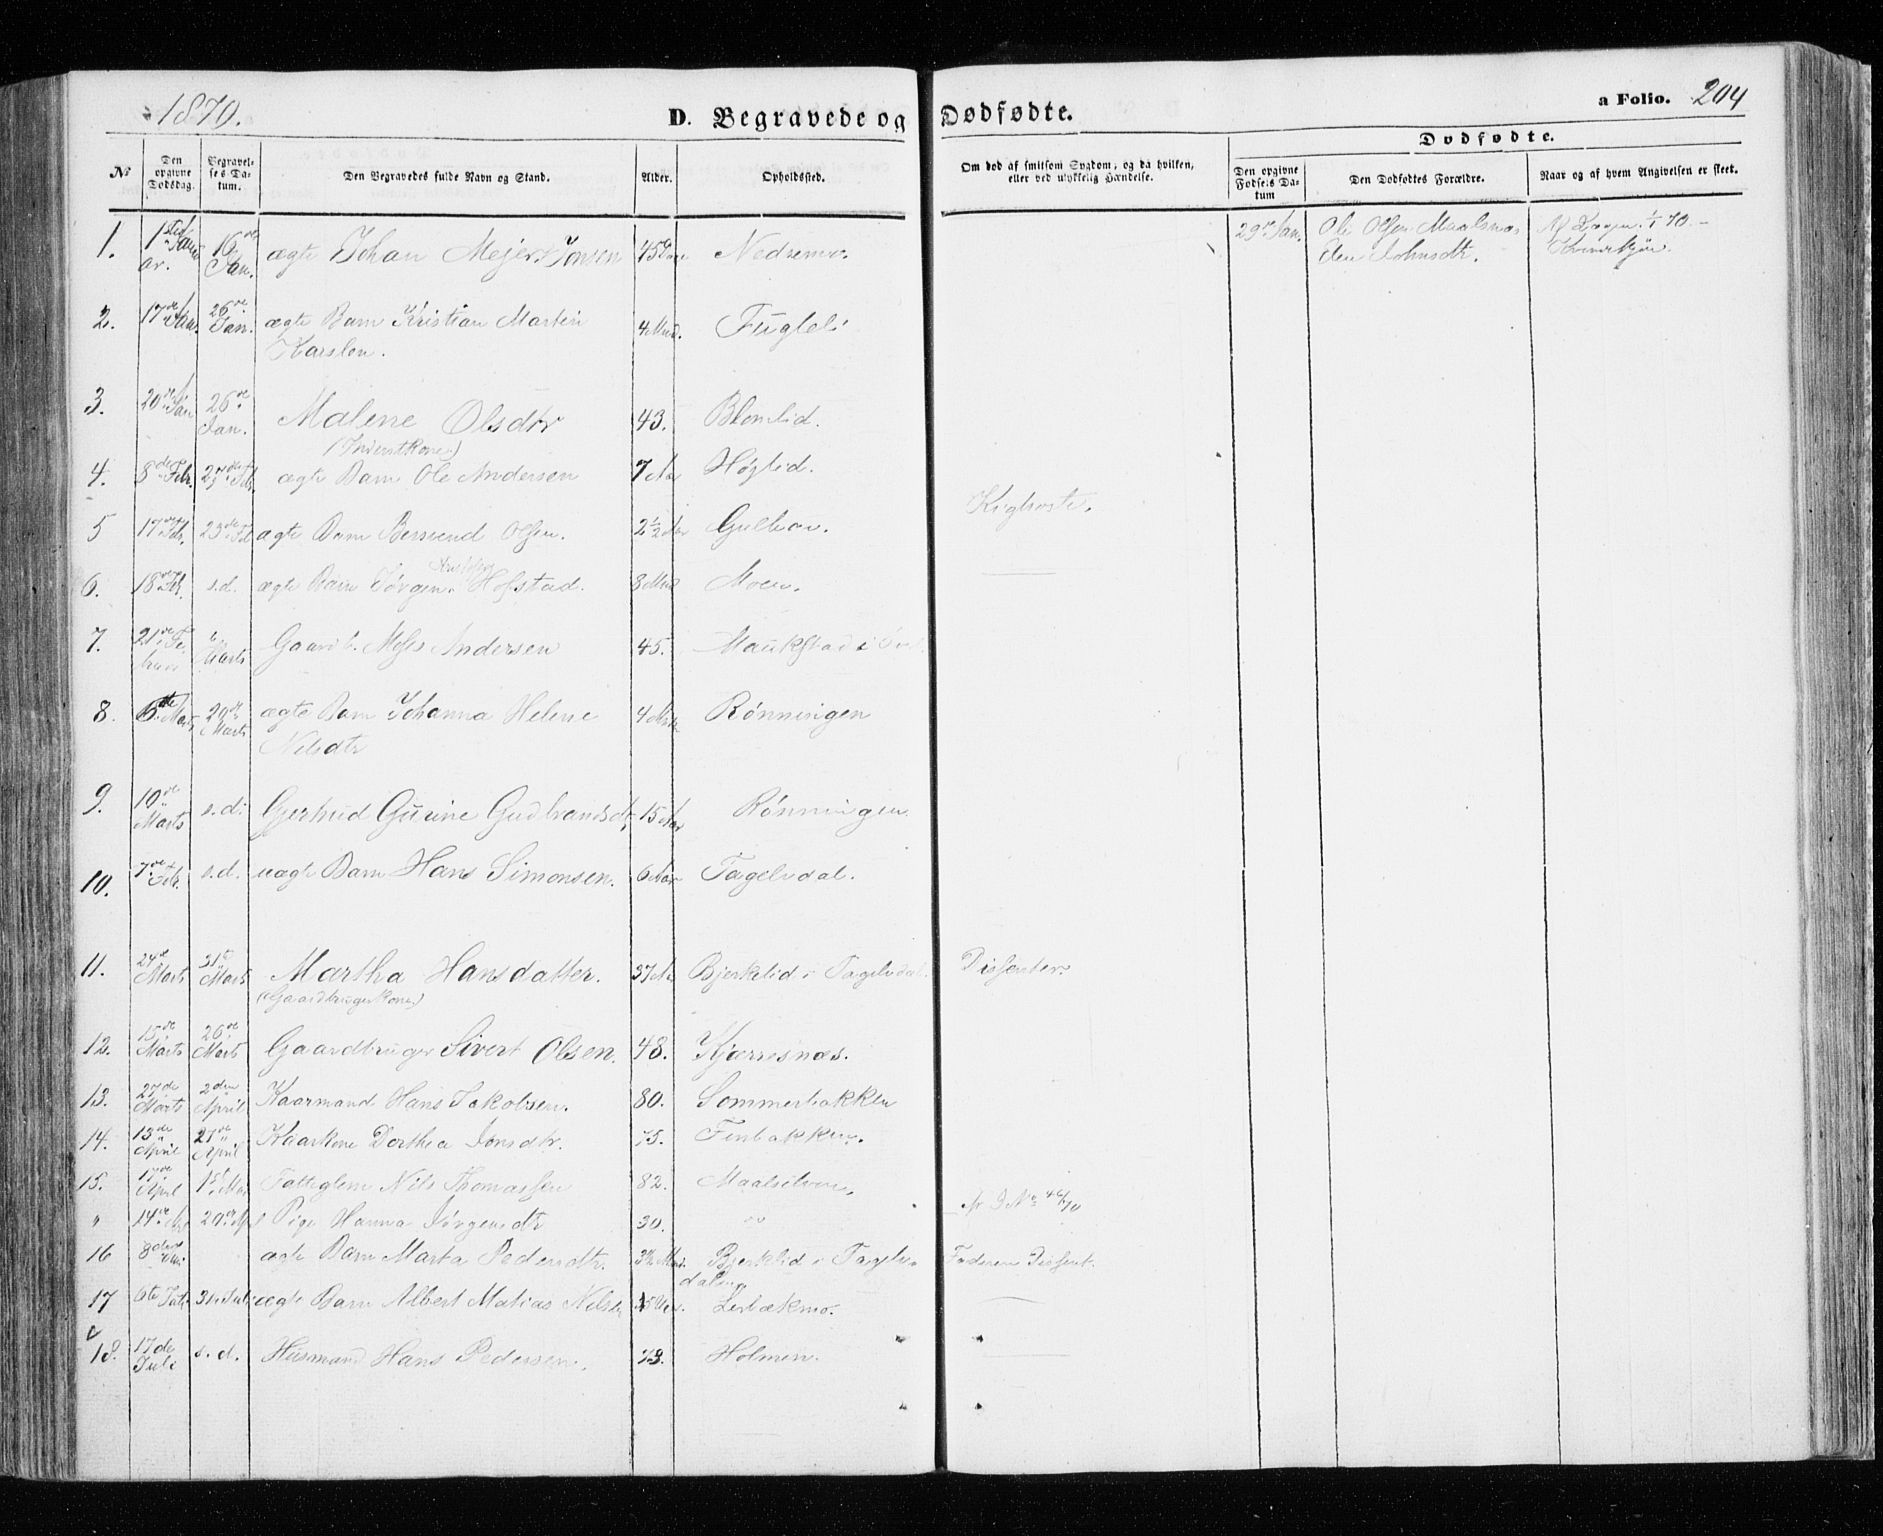 1870.
D. Begravede og Dødfødte.
a Folio. 204
Dødfødte.
No
Den opgivne Dødsdag.
Begravelses Datum.
Den Begravedes fulde Navn og Stand.
Alder.
Opholdssted.
Om død af smitsom Sygdom, og da hvilken, eller ved ulykkelig Hændelse.
Den opgivne Fødsels Datum
Den Dødfødtes Forældre.
Naar og af hvem Angivelsen er skeet.
1. 1ste Januar. 16de Jan. ægte Johan Mejer Jonsen 45 Nedremo. 29de Jan. Ole Olsen Maalsnes 70
Elen Johnsdtr. Kvinekjøn.
2. 17de Jan. 26de Jan. ægte Barn Kristian Martin 4 Mnd. Fugleli
Karslen.
3. 20de Jan 26de Jan. Malene Olsdtr 43. Blomlid.
(Inderstkone)
4. 8de Febr. 23de Febr. ægte Barn Ole Andersen 7 Aar Høglid.
Kighoste.
5 17de Febr. 23de Feb ægte Barn Bersvend Olsen. 2 1/2 Aar Gulhav.
6. 18de Febr. s.d. ægte Barn Jørgen Hofstad. 8 Mnd Moen.
7. 21de Februar 6 Marts Gaardb. Moses Andersen 45. Maukstad i
8. 6te Marts 20de Marts ægte Barn Johanna Helene 4 Rønningen
Nilsdtr
9. 10de Marts s.d. Gjertrud Gurine Gudbrandsdtr 15 Aar Rønningen
10. 7de Febr. s.d. uægte Barn Hans Simonsen. 6 Aar Tagelvdal.
11. 24de Marts 31te Marts Martha Hansdatter. 37 Aar Bjerkelid i Tagelvdal. Dissenter.
(Gaardbrugerkone)
12. 15de Marts 26de Marts Gaardbruger Sivert Olsen. 48. Kjerresnes.
13. 27de Marts 2den April Kaarmand Hans Jakobsen. 80. Sommerbakken
14. 13de April 21de April Kaarkone Dorthea Jonsdtr. 75. Finbakken.
15. 17de April 1st Mai Fattiglem Nils Thomassen 82. Maalselven.
" 14de 20de Pige Hanna Jørgensdtr 30. " No 46/70
16 8de ægte Barn Marta Pedersdtr. Bjerklid i Tagelv- Faderen Dissent.
dalen
17 6te 31te Juli ægte Barn Albert Matias Nilsen Lerbækmo.
18. 17de Juli s.d. Husmand Hans Pedersen. 73. Holmen.